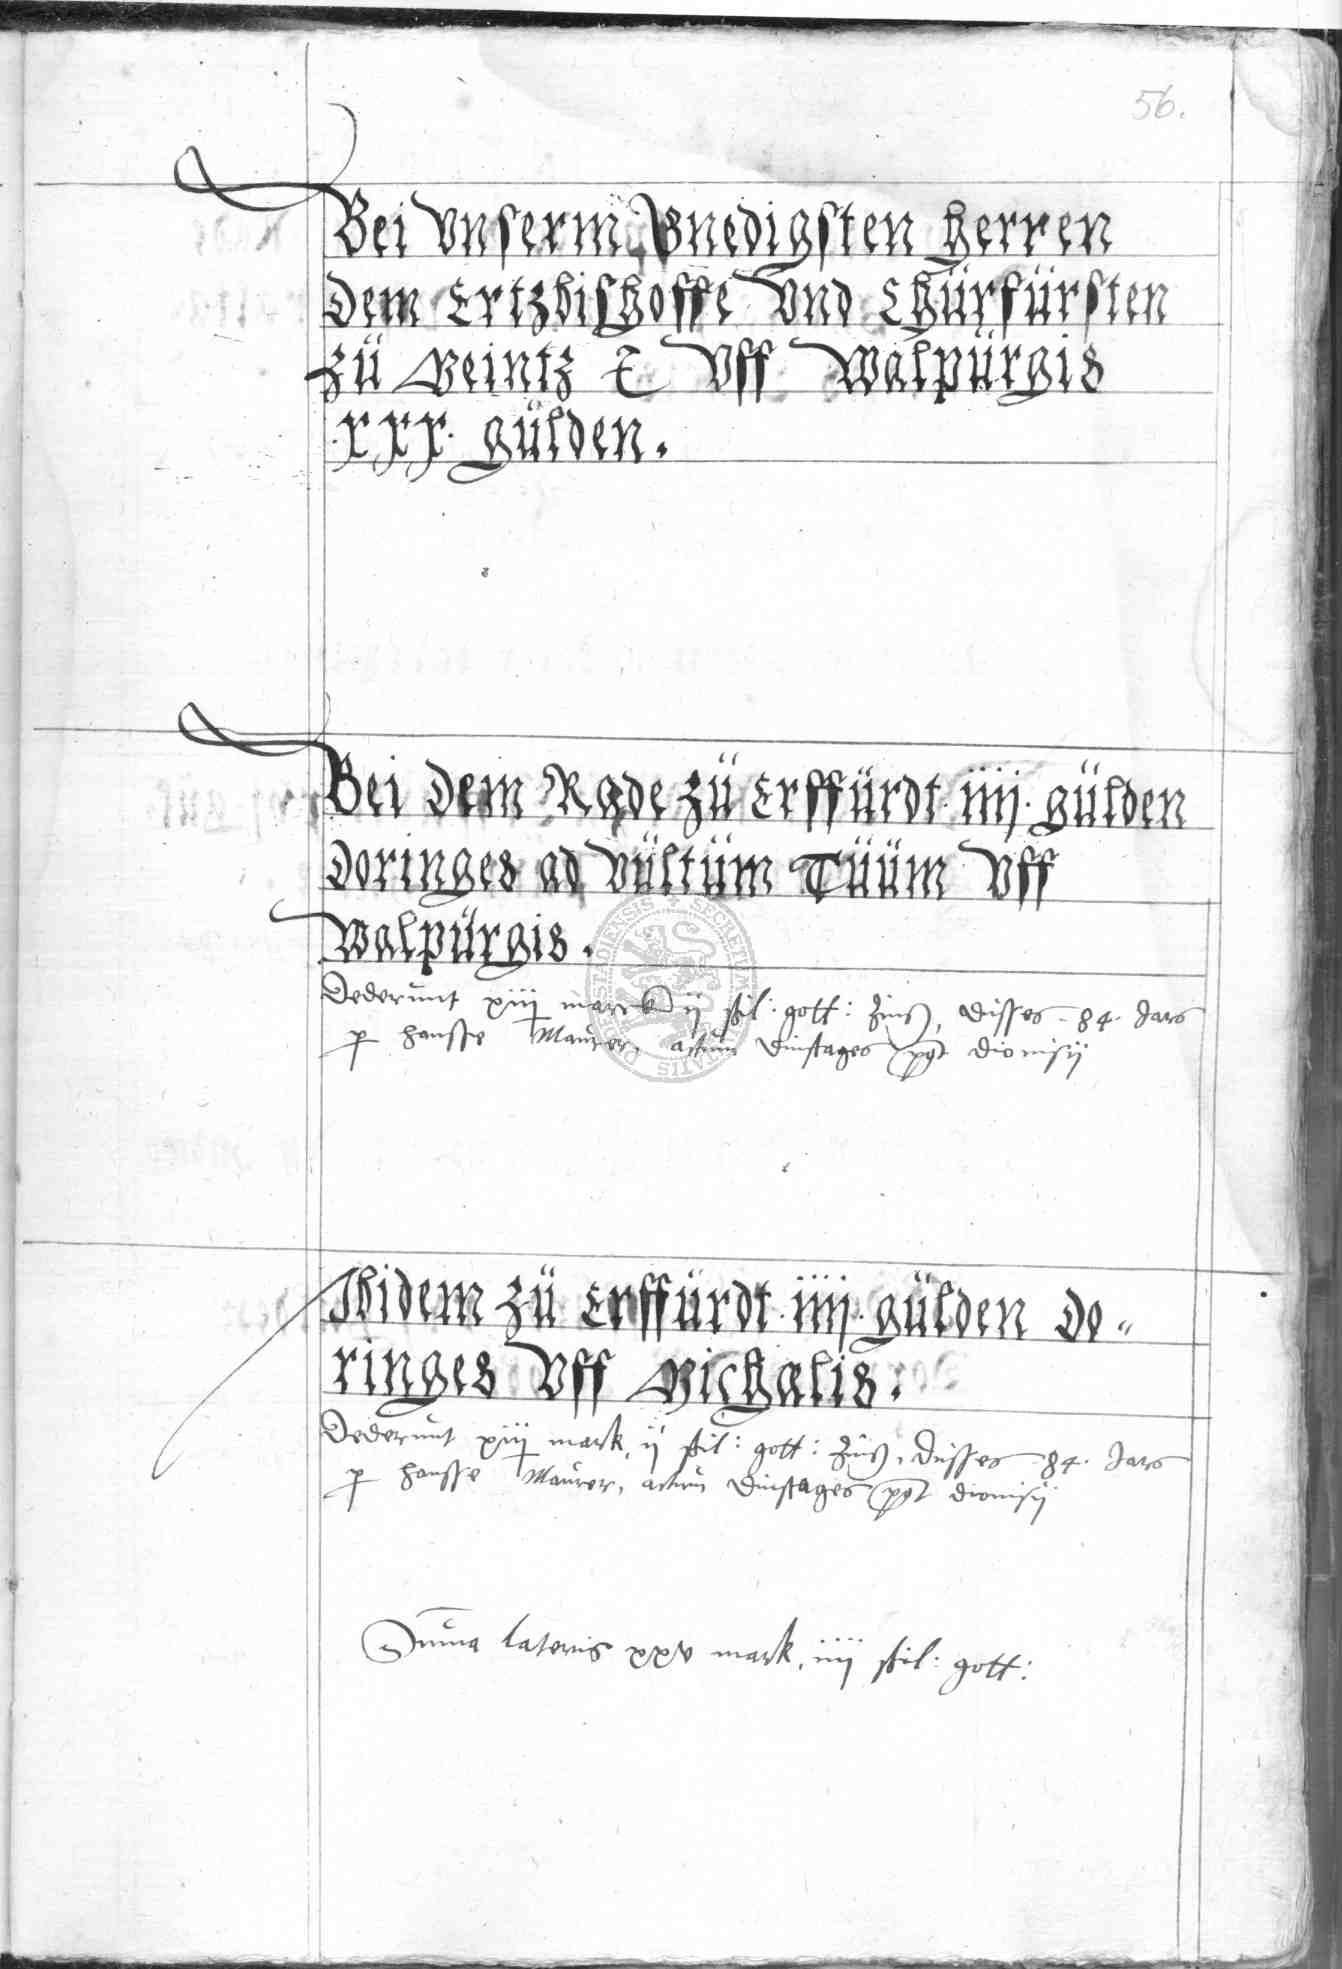 56.
Bei Vnserm Gnedigsten herren
dem Ertzbischoffe Vnd Chürfürsten
zü Meintz ꝛc Vff Walpürgis
.xxx. gülden.
Bei dem Rade zü Erffürdt .iiij. gülden
doringes ad Vültüm Tüüm Vff
Walpürgis.
dederunt xiij marck ij ſchil: gott: Zinß, disses 84. Jars
p hansse Maurer, actum dinstages post dionisij
Ibidem zü Erffürdt .iiij. gülden do-
ringes Vff Michalis.
dederunt xiij mark, ij ſchil: gott: Zinß, disses 84. Jars
p hansse Maurer, actum dinstages post dionisij
Summa lateris xxv mark, iiij ſchil: gott: